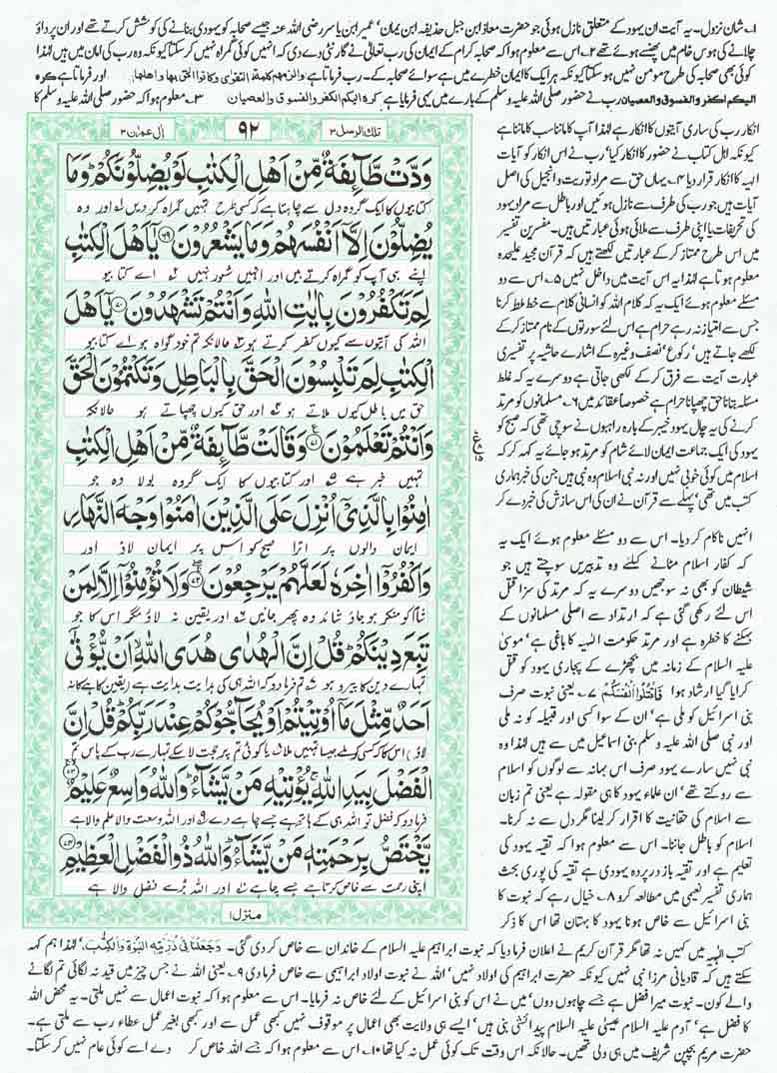 ۱۔ شان نزول۔ یہ آیت ان یہود کے متعلق نازل ہوئی جو حضرت معاذ ابن جبل حذیفہ ابن یمان' عمیر ابن یاسر رضی اللہ عنہ جیسے صحابہ کو یہودی بنانے کی کوشش کرتے تھے اور ان پر داؤ
چلانے کی ہوس خام میں پھنسے ہوئے تھے ۲۔ اس سے معلوم ہوا کہ صحابہ کرام کے ایمان کی رب تعالیٰ نے گارنٹی دے دی کہ انہیں کوئی گمراہ نہیں کر سکتا کیونکہ وہ رب کی امان میں ہیں لہٰذا
کوئی بھی صحابہ کی طرح مومن نہیں ہو سکتا کیونکہ ہر ایک کا ایمان خطرے میں ہے سوائے صحابہ کے۔ رب فرماتا ہے والزمهم كلمة التقوى وكانوا احق بها واهلها اور فرماتا ہے كره
اليكم الكفر والفسوق والعصيان رب نے حضور صلی اللہ علیہ وسلم کے بارے میں یہی فرمایا ہے كره اليكم الكفر والفسوق والعصيان ۳۔ معلوم ہوا کہ حضور صلی اللہ علیہ وسلم کا
تلك الرسل ۳
۹۲
اٰل عمران ۳
وَدَّتْ طَّآىِٕفَةٌ مِّنْ اَهْلِ الْكِتٰبِ لَوْ یُضِلُّوْنَكُمْؕ وَمَا
کتابیوں کا ایک گروہ دل سے چاہتا ہے کہ کسی طرح تمہیں گمراہ کر دیں اور وہ
یُضِلُّوْنَ اِلَّاۤ اَنْفُسَهُمْ وَمَا یَشْعُرُوْنَ۝۶۹ یٰۤاَهْلَ الْكِتٰبِ
اپنے ہی آپ کو گمراہ کرتے ہیں اور انہیں شعور نہیں اے کتابیو
لِمَ تَكْفُرُوْنَ بِاٰیٰتِ اللّٰهِ وَاَنْتُمْ تَشْهَدُوْنَ۝۷۰ یٰۤاَهْلَ
اللہ کی آیتوں سے کیوں کفر کرتے ہو حالانکہ تم خود گواہ ہو اے کتابیو
الْكِتٰبِ لِمَ تَلْبِسُوْنَ الْحَقَّ بِالْبَاطِلِ وَتَكْتُمُوْنَ الْحَقَّ
حق میں باطل کیوں ملاتے ہو اور حق کیوں چھپاتے ہو حالانکہ
وَاَنْتُمْ تَعْلَمُوْنَ۝۷۱ وَقَالَتْ طَّآىِٕفَةٌ مِّنْ اَهْلِ الْكِتٰبِ
تمہیں خبر ہے اور کتابیوں کا ایک گروہ بولا وہ جو
اٰمِنُوْا بِالَّذِیْۤ اُنْزِلَ عَلَى الَّذِیْنَ اٰمَنُوْا وَجْهَ النَّهَارِ
ایمان والوں پر اترا صبح کو اس پر ایمان لاؤ اور
وَاكْفُرُوْۤا اٰخِرَهٗ لَعَلَّهُمْ یَرْجِعُوْنَ۝۷۲ وَلَا تُؤْمِنُوْۤا اِلَّا لِمَنْ
شام کو منکر ہو جاؤ شاید وہ پھر جائیں اور یقین نہ لاؤ مگر اس کا جو
تَبِعَ دِیْنَكُمْؕ قُلْ اِنَّ الْهُدٰى هُدَى اللّٰهِۙ اَنْ یُّؤْتٰۤى
تمہارے دین کا پیرو ہو تم فرما دو کہ اللہ ہی کی ہدایت ہدایت ہے (یقین کا ہے کا نہ
اَحَدٌ مِّثْلَ مَاۤ اُوْتِیْتُمْ اَوْ یُحَآجُّوْكُمْ عِنْدَ رَبِّكُمْؕ قُلْ اِنَّ
لاؤ) اس کا کہ کسی کو ملے جیسا تمہیں ملا یا کوئی تم پر حجت لا سکے تمہارے رب کے پاس تم
الْفَضْلَ بِیَدِ اللّٰهِۚ یُؤْتِیْهِ مَنْ یَّشَآءُؕ وَاللّٰهُ وَاسِعٌ عَلِیْمٌ۝۷۳
فرما دو کہ فضل تو اللہ ہی کے ہاتھ ہے جسے چاہے دے اور اللہ وسعت والا علم والا ہے
یَّخْتَصُّ بِرَحْمَتِهٖ مَنْ یَّشَآءُؕ وَاللّٰهُ ذُو الْفَضْلِ الْعَظِیْمِ۝۷۴
اپنی رحمت سے خاص کرتا ہے جسے چاہے اور اللہ بڑے فضل والا ہے
منزل ۱
انکار رب کی ساری آیتوں کا انکار ہے لہٰذا آپ کا ماننا سب کا ماننا ہے
کیونکہ اہل کتاب نے حضور کا انکار کیا' رب نے اس انکار کو آیات
الہیہ کا انکار قرار دیا ۴۔ یہاں حق سے مراد توریت و انجیل کی اصل
آیات ہیں جو رب کی طرف سے نازل ہوئیں اور باطل سے مراد یہود
کی تحریفات یا اپنی طرف سے ملائی ہوئی عبارتیں ہیں۔ مفسرین تفسیر
میں اس طرح ممتاز کر کے عبارتیں لکھتے ہیں کہ قرآن مجید علیحدہ
معلوم ہوتا ہے لہٰذا یہ اس آیت میں داخل نہیں ۵۔ اس سے دو
مسئلے معلوم ہوئے ایک یہ کہ کلام اللہ کو انسانی کلام سے خلط ملط کرنا
جس سے امتیاز نہ رہے حرام ہے اس لئے سورتوں کے نام ممتاز کر کے
لکھے جاتے ہیں' رکوع' نصف وغیرہ کے اشارے حاشیہ پر تفسیری
عبارت آیت سے فرق کر کے لکھی جاتی ہے دوسرے یہ کہ غلط
مسئلہ بتانا حق چھپانا حرام ہے خصوصاً عقائد میں ۶۔ مسلمانوں کو مرتد
کرنے کی یہ چال یہود خیبر کے بارہ راہبوں نے سوچی تھی کہ صبح کو
یہود کی ایک جماعت ایمان لائے شام کو مرتد ہو جائے یہ کہہ کر کہ
اسلام میں کوئی خوبی نہیں اور نہ نبی اسلام وہ نبی ہیں جن کی خبر ہماری
کتب میں تھی' پہلے سے قرآن نے ان کی اس سازش کی خبر دے کر
انہیں ناکام کر دیا۔ اس سے دو مسئلے معلوم ہوئے ایک یہ
کہ کفار اسلام مٹانے کیلئے وہ تدبیریں سوچتے ہیں جو
شیطان کو بھی نہ سوجھیں دوسرے یہ کہ مرتد کی سزا قتل
اس لئے رکھی گئی ہے کہ ارتداد سے اصلی مسلمانوں کے
بہکنے کا خطرہ ہے اور مرتد حکومت الہیہ کا باغی ہے' موسیٰ
علیہ السلام کے زمانہ میں بچھڑے کے پجاری یہود کو قتل
کرایا گیا ارشاد ہوا فَاقْتُلُوْا اَنْفُسَكُمْ ۷۔ یعنی نبوت صرف
بنی اسرائیل کو ملی ہے' ان کے سوا کسی اور قبیلہ کو نہ ملی
اور نبی صلی اللہ علیہ وسلم بنی اسماعیل میں سے ہیں لہٰذا وہ
نبی نہیں سارے یہود صرف اس بہانہ سے لوگوں کو اسلام
سے روکتے تھے' ان علماء یہود کا ہی مقولہ ہے یعنی تم زبان
سے اسلام کی حقانیت کا اقرار کر لینا مگر دل سے نہ کرنا۔
اسلام کو باطل جاننا۔ اس سے معلوم ہوا کہ تقیہ یہود کی
تعلیم ہے اور تقیہ باز در پردہ یہودی ہے تقیہ کی پوری بحث
ہماری تفسیر نعیمی میں مطالعہ کرو ۸۔ خیال رہے کہ نبوت کا
بنی اسرائیل سے خاص ہونا یہود کا بہتان تھا اس کا ذکر
کتب الہیہ میں کہیں نہ تھا مگر قرآن کریم نے اعلان فرما دیا کہ نبوت ابراہیم علیہ السلام کے خاندان سے خاص کر دی گئی۔ وَجَعَلْنَا فِیْ ذُرِّیَّتِهِ النُّبُوَّةَ وَالْكِتٰبَ' لہٰذا ہم کہہ
سکتے ہیں کہ قادیانی مرزا نبی نہیں کیونکہ حضرت ابراہیم کی اولاد نہیں' اللہ نے نبوت اولاد ابراہیمی سے خاص فرما دی ۹۔ یعنی اللہ نے جس چیز میں قید نہ لگائی تم لگانے
والے کون۔ نبوت میرا فضل ہے جسے چاہوں دوں' میں نے اس کو بنی اسرائیل کے لئے خاص نہ فرمایا۔ اس سے معلوم ہوا کہ نبوت اعمال سے نہیں ملتی۔ یہ محض اللہ
کا فضل ہے' آدم علیہ السلام عیسیٰ علیہ السلام پیدائشی نبی ہیں' ایسے ہی ولایت بھی اعمال پر موقوف نہیں کبھی عمل سے اور کبھی بغیر عمل عطاء رب سے ملتی ہے۔
حضرت مریم بچپن شریف میں ہی ولی تھیں۔ حالانکہ اس وقت تک کوئی عمل نہ کیا تھا ۱۰۔ اس سے معلوم ہوا کہ جسے اللہ خاص کر دے اسے کوئی عام نہیں کر سکتا۔